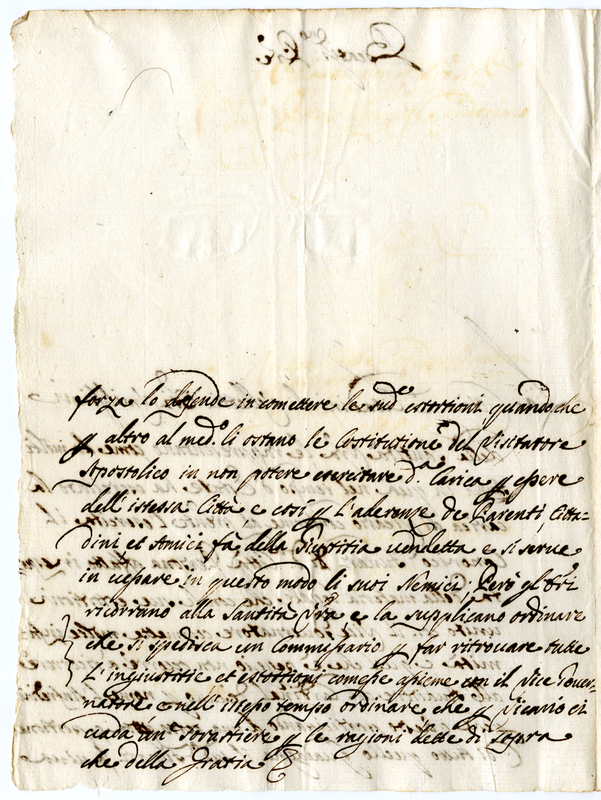 forza lo difende in comettere le sud.e estortioni quando che
p altro al med.o li ostano le Costitutione del Visitatore
Apostolico in non potere esercitare d.a Carica p essere
dell'istessa Città, e così p l'aderenze de Parenti, Citta-
dini, et Amici fà della Giustitia vendetta e si serve
in vessare in questo modo li suoi Nemici; Però gl'Ori
ricorrano alla Santità Vra, e la supplicano ordinare
che si spedisca un Commissario p far ritrovare tutte
L'ingiustitie et estortioni comesse assieme con il Vice Gover-
natore e nell'istesso tempo ordinare che p Vicario ci
vada un forastiere p le ragioni dette di sopra
che della gratia